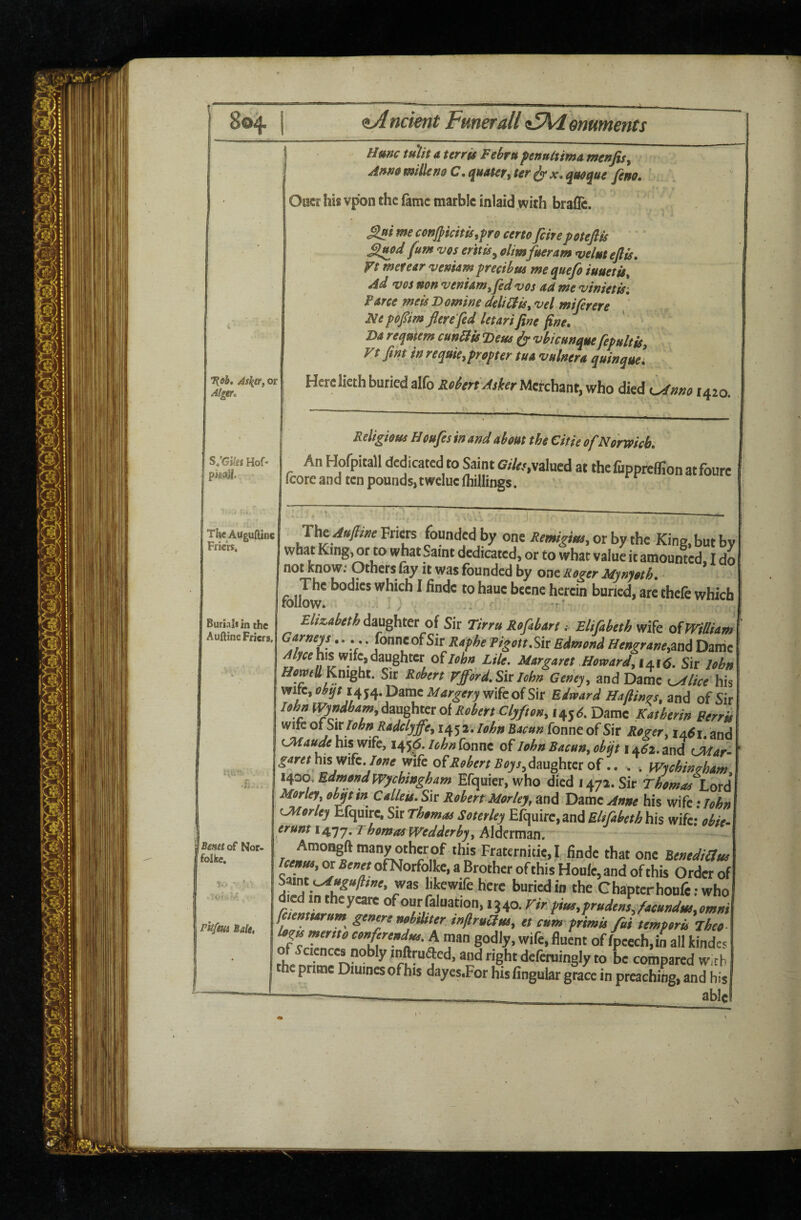 804
Ancient Funerall Monuments
Hunc tulit a terris Febru penultima mensis,
Anno milleno C. quater, ter & x. quoque seno.
Ouer his vpon the same marble inlaid with brasse.
Qui me conspicitis, pro certo scire potestis
Quod sum vos eritis, olim fueram velut estis.
Vt mercar veniam precibus me queso iuuetis,
Ad vos non veniam, sed vos ad me vinietis:
Parce meis Domine delictis, vel miserere
Ne possim flere sed letari sine fine.
Da requiem cunctis Deus & vbicunque sepultis,
Vt sint in requie, propter tua vulnera quinque.
Rob. Asker, or
Alger.
Here lieth buried also Robert Asker Merchant, who died Anno 1420.
Religious Houses in and about the Citie of Norwich.
S. Giles Hos-
pitall.
An Hospitall dedicated to Saint Giles, valued at the suppression at foure
score and ten pounds, twelue shillings.
The Augustine
Friers,
The Austine Friers founded by one Remigius, or by the King, but by
what King, or to what Saint dedicated, or to what value it amounted, I do
not know: Others say it was founded by one Roger Mynyoth.
The bodies which I finde to haue beene herein buried, are these which
follow.
Burials in the
Austine Friers,
Elizabeth daughter of Sir Tirru Rosabart: Elisabeth wife of William
Garneys..... sonne of Sir Raphe Pigott. Sir Edmond Hengrane, and Dame
Alyce his wife, daughter of Iohn Lile. Margaret Howard, 1416. Sir Iohn
Howell Knight. Sir Robert Vfford. Sir Iohn Geney, and Dame Alice his
wife, obijt 1454. Dame Margery wife of Sir Edward Hastings, and of Sir
Iohn Wyndham, daughter of Robert Clyfton, 1456. Dame Katherin Berris
wife of Sir Iohn Radclyffe, 1452. Iohn Bacun sonne of Sir Roger, 1461. and
Maude his wife, 1456. Iohn sonne of Iohn Bacun, obijt 1462. and Mar-
garet his wife. Ione wife of Robert Boys, daughter of .. . . Wychingham,
1400. Edmond Wychingham Esquier, who died 1472. Sir Thomas Lord
Morley, obijt in Calleis. Sir Robert Morley, and Dame Anne his wife: Iohn
Morley Esquire, Sir Thomas Soterley Esquire, and Elisabeth his wife: obie-
erunt 1477. Thomas Wedderby, Alderman.
Benet of Nor-
folke.
Amongst many other of this Fraternitie, I finde that one Benedictus
Icenus, or Benet of Norfolke, a Brother of this House, and of this Order of
Saint Augustine, was likewise here buried in the Chapter house: who
died in the yeare of our saluation, 1340. Vir pius, prudens, facundus, omni
scientiarum genere nobiliter instructus, et cum primis sui temporis Theo-
logis merito conferendus. A man godly, wise, fluent of speech, in all kindes
of Sciences nobly instructed, and right deseruingly to be compared with
the prime Diuines of his dayes. For his singular grace in preaching, and his
Pitseus Bale,
able